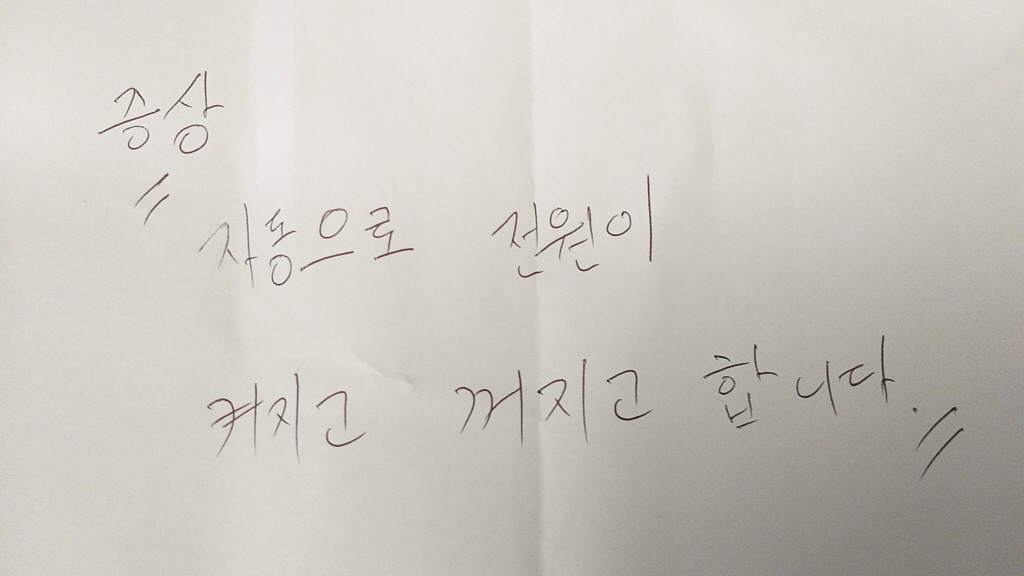 증상
〃 자동으로 전원이
켜지고 꺼지고 합니다.〃